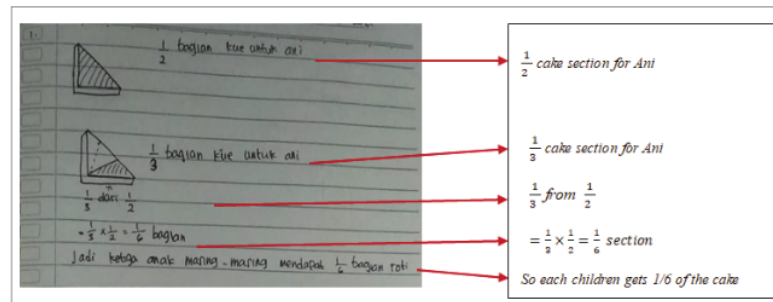 1.
1/2 bagian kue untuk ani
1/3 bagian kue untuk ani
1/3 dari 1/2
= 1/3 x 1/2 = 1/6 bagian
Jadi ketiga anak masing-masing mendapat 1/6 bagian roti
1/2 cake section for Ani
1/3 cake section for Ani
1/3 from 1/2
= 1/3 × 1/2 = 1/6 section
So each children gets 1/6 of the cake